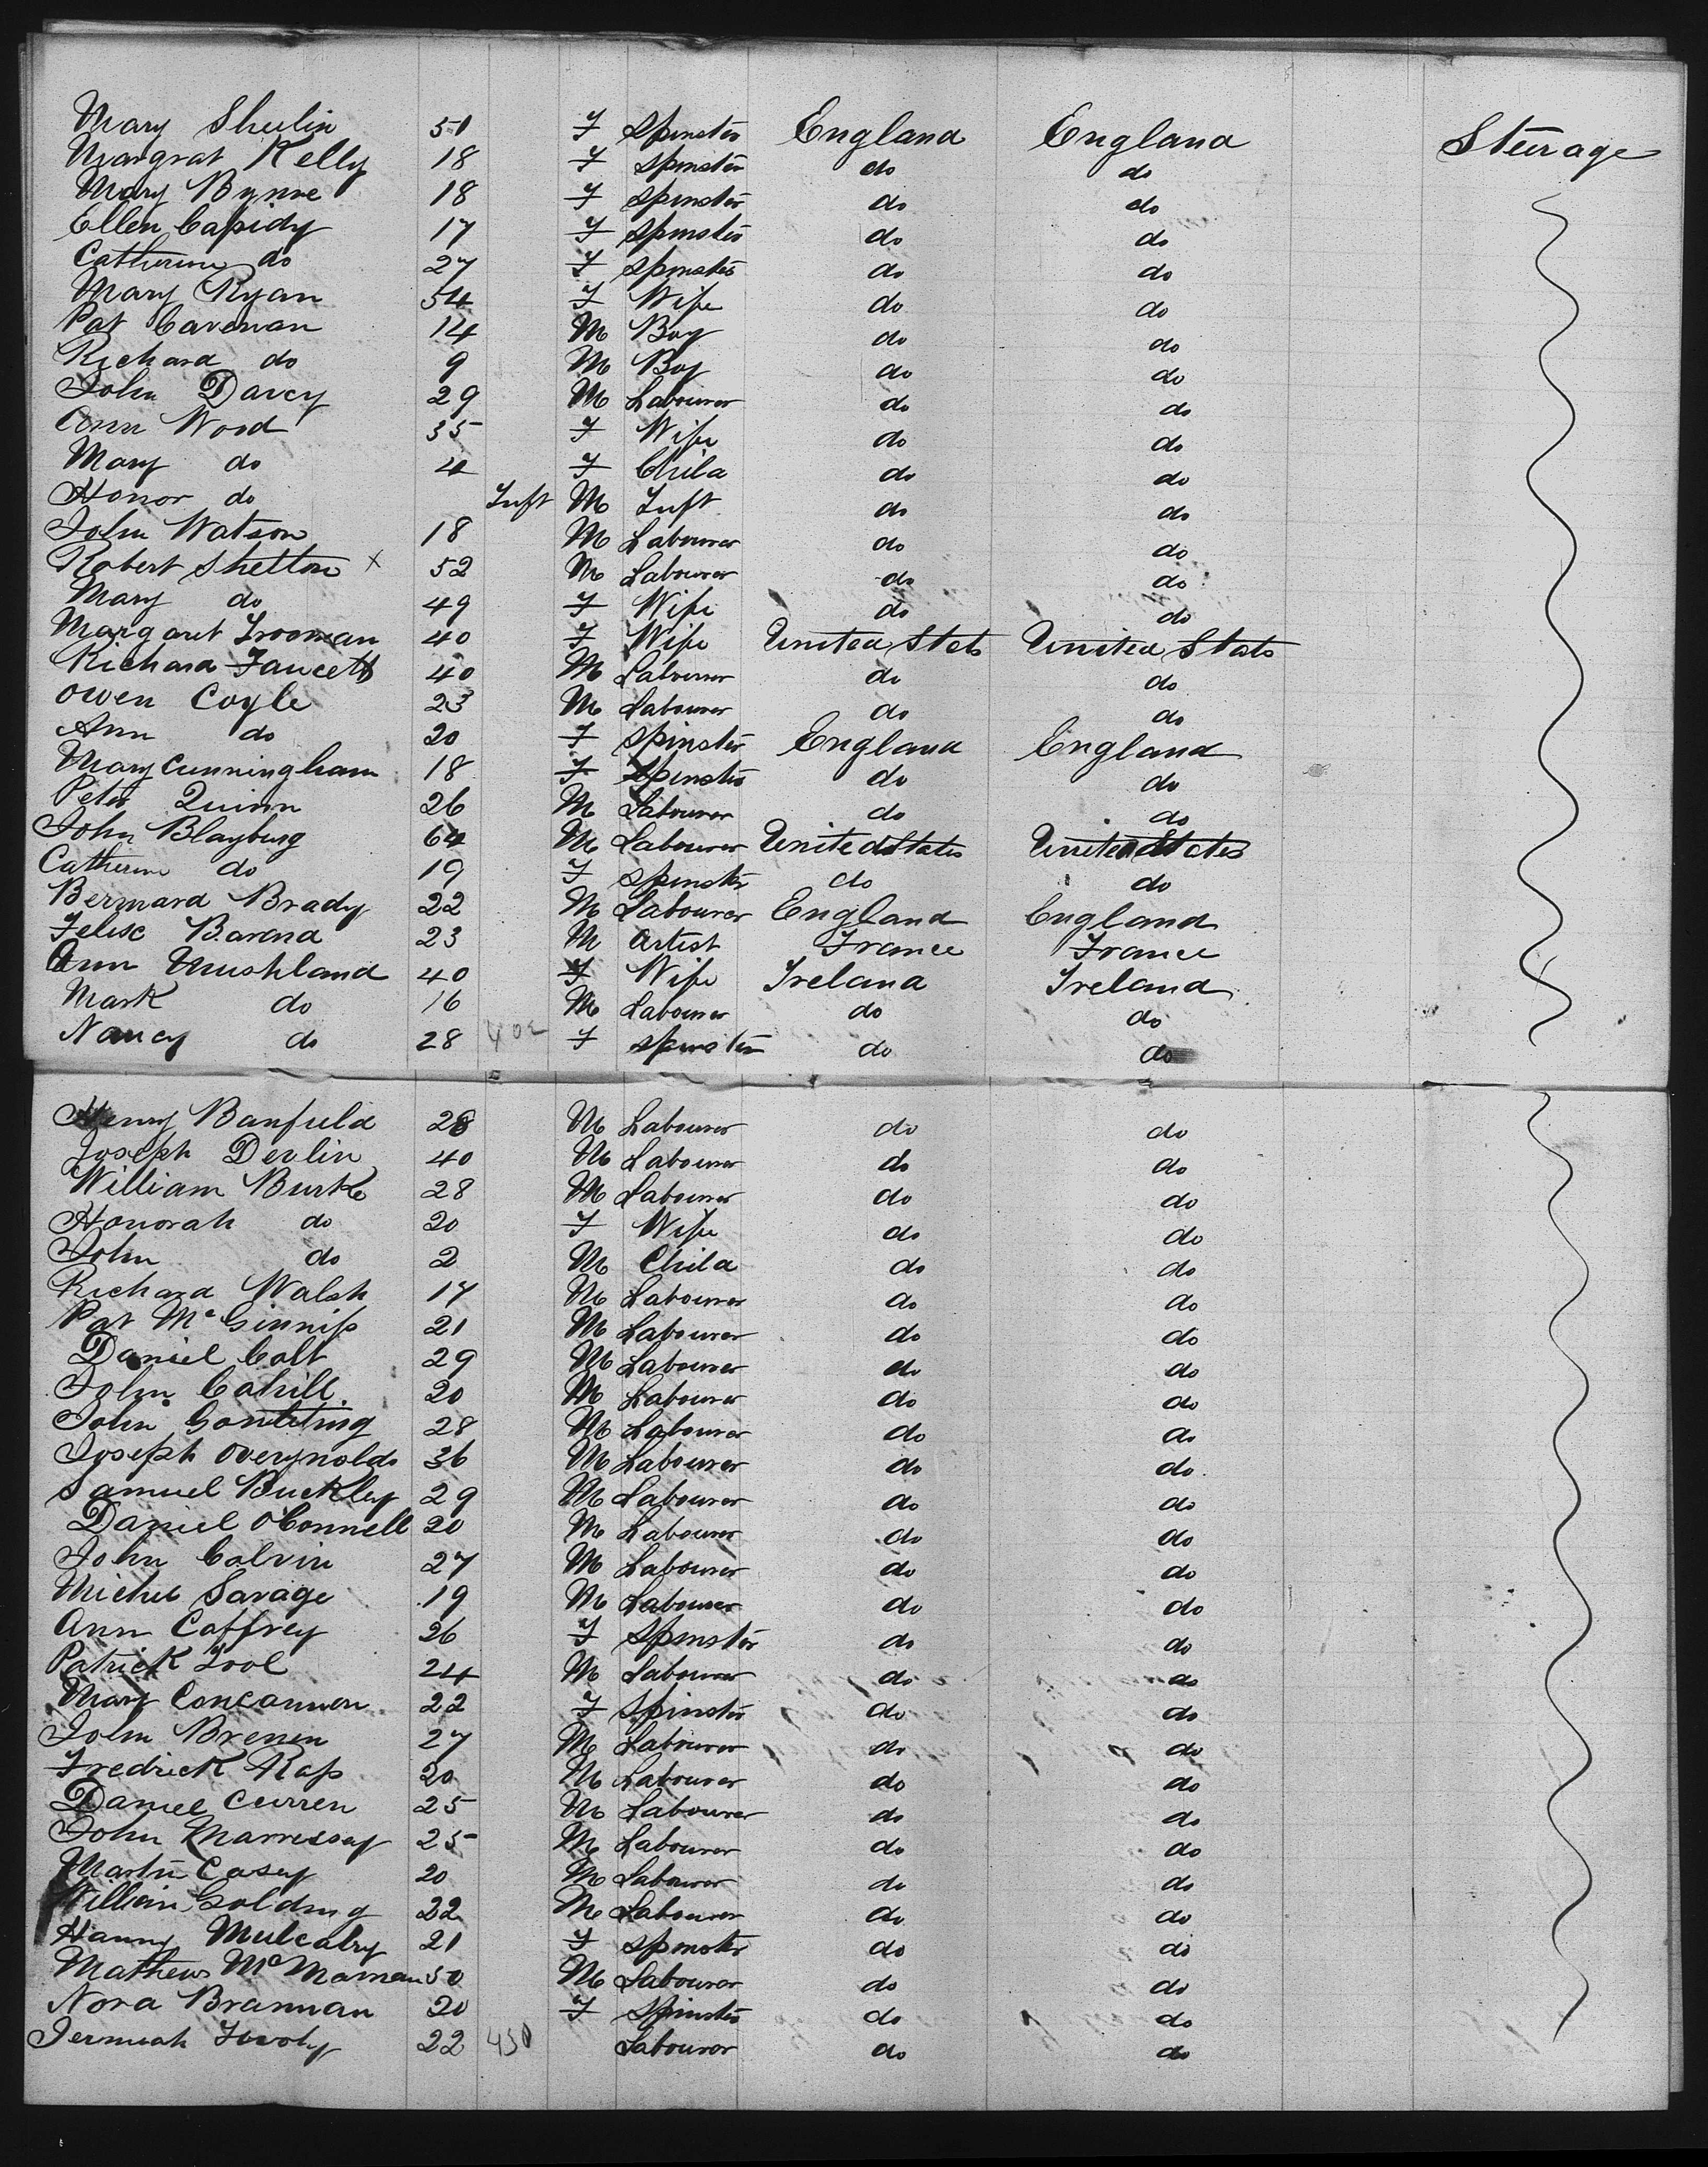 Mary Sheelin 50 F Spinster England England Steerage
Margrat Kelly 18 F Spinster do do
Mary Bynne 18 F Spinster do do
Ellen Casidy 17 F Spinster do do
Catherine do 27 F Spinster do do
Mary Ryan 54 F Wife do do
Pat Cavenan 14 M Boy do do
Richard do 9 M Boy do do
John Darcy 29 M Labourer do do
Ann Wood 35 F Wife do do
Mary do 4 F Child do do
Honor do Inft M Inft do do
John Watson 18 M Labourer do do
Robert Shelton x 52 M Labourer do do
Mary do 49 F Wife do do
Margaret 40 F Wife United Stats United Stats
Richard Fawcett 40 M Labourer do do
Owen Coyle 23 M Labourer do do
Ann do 20 F Spinster England England
Mary Cunningham 18 F Spinster do do
Peter Quinn 26 M Labourer do do
John Blayburg 64 M Labourer United States United States
Catherine do 19 F Spinster do do
Bernard Brady 22 M Labourer England England
Felix 23 M Artist France France
Ann Mushland 40 F Wife Ireland Ireland
Mark do 16 M Labourer do do
Nancy do 28 402 F Spinster do do
Henry Banfield 28 M Labourer do do
Joseph Devlin 40 M Labourer do do
William Burke 28 M Labourer do do
Honorah do 20 F Wife do do
John do 2 M Child do do
Richard Walsh 17 M Labourer do do
Pat McGinnis 21 M Labourer do do
Daniel Colt 29 M Labourer do do
John Cahill 20 M Labourer do do
John 28 M Labourer do do
Joseph Overynolds 36 M Labourer do do
Samuel Buckley 29 M Labourer do do
Daniel OConnell 20 M Labourer do do
John Colvin 27 M Labourer do do
Michel Savage 19 M Labourer do do
Ann Caffrey 26 F Spinster do do
Patrick Tool 24 M Labourer do do
Mary Concannon 22 F Spinster do do
John Brenen 27 M Labourer do do
Fredrick Rass 20 M Labourer do do
Daniel Curren 25 M Labourer do do
John Marressey 25 M Labourer do do
Martin Casey 20 M Labourer do do
William Golding 22 M Labourer do do
Hanny Mulcahy 21 F Spinster do do
Mathew 50 M Labourer do do
Nora Brannan 20 F Spinster do do
Jermiah 22 430 Labourer do do